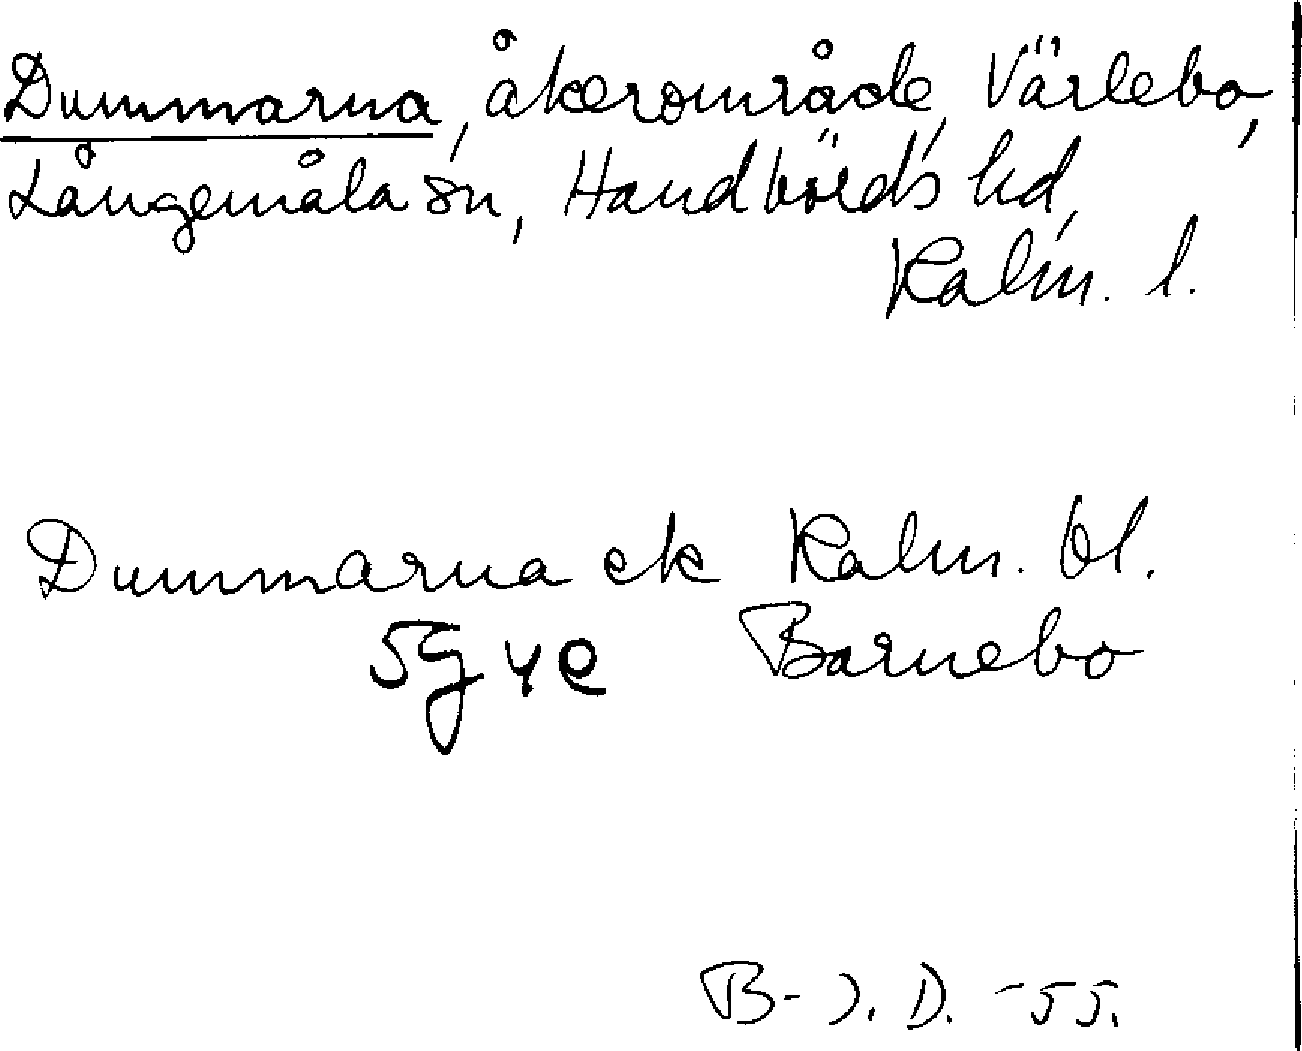 Dummarna, åkerområde, Värlebo,
Långemåla sn, Handbörds hd,
Kalm. l.
Dummarna ek Kalm. bl.
5G 4e Barnebo
B-J. D. -55.